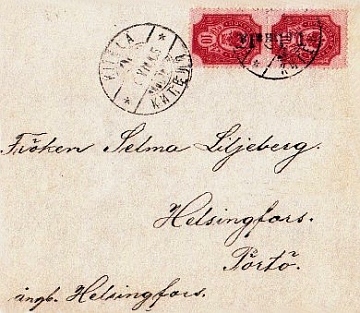 10
10
Fröken Selma Liljeberg.
Helsingfors.
Pörtö.
ångb. Helsingfors.